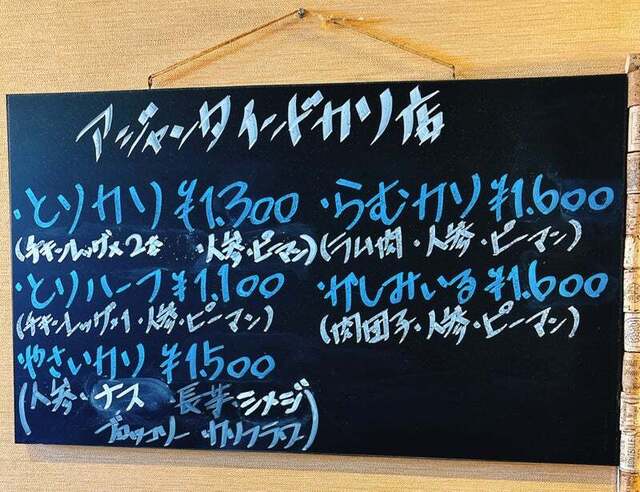 アージャンタインドカリ店
・とりかり ¥1.300
(チキンレッグ×2本 ・人参・ピーマン)
・とりハーフ ¥1,100
(チキンレッグ×1・人参・ピーマン)
やさいかり ¥1.500
(人参・ナス 長芋・シメジ
ブロッコリー ・カリフラワー)
・らむかり ¥1.600
(ラム肉・人参・ピーマン)
・かしみいる ¥1.600
(肉団子・人参・ピーマン)